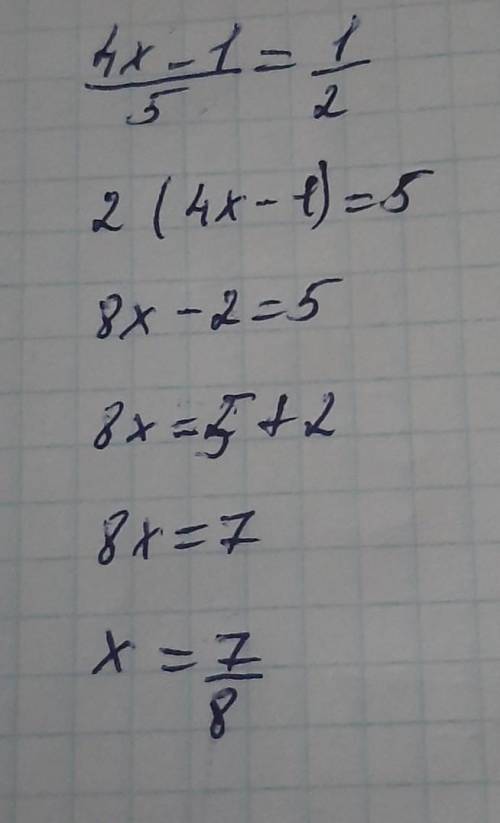 (4x - 1)/5 = 1/2
2 (4x - 1) = 5
8x - 2 = 5
8x = 5 + 2
8x = 7
x = 7/8